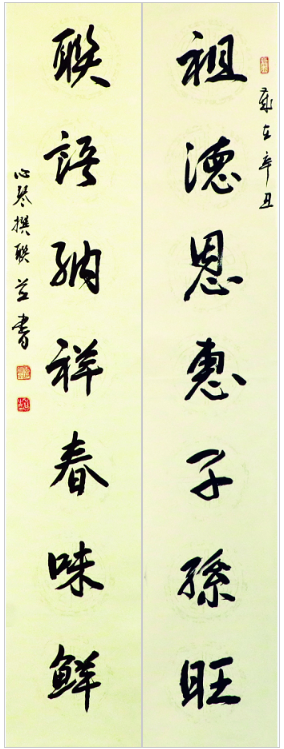 歲在辛丑
祖德恩惠子孫旺
聯語納祥春味鮮
心琴撰聯並書